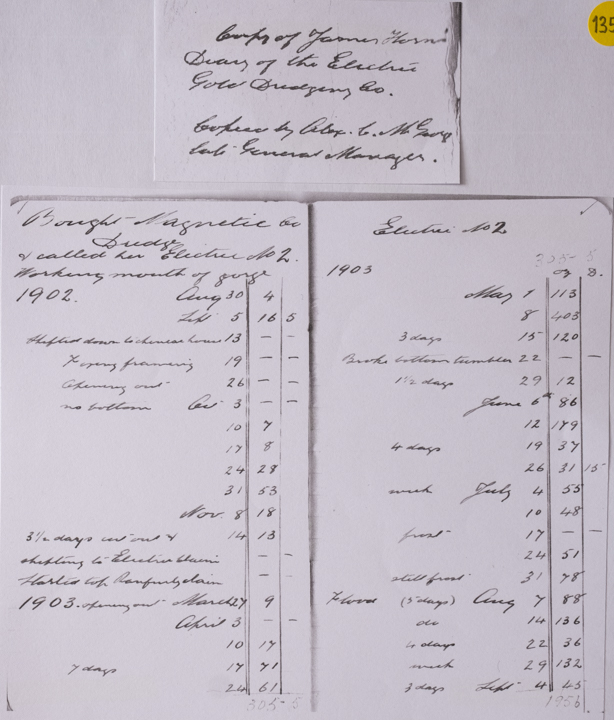 135
Copy of James Horn's
Diary of the Electric
Gold Dredging Co.
Copied by Alex. C. McGeorge
late General Manager.
Bought Magnetic Co
Dredge
& called her Electric No 2.
Working mouth of gorge
1902. Aug 30 4
Sept 5 16 5
Shifted down to chinese house 13 – –
& opening framing 19 – –
Opening out 26 – –
no bottom Oct 3 – –
10 7
17 8
24 28
31 53
Nov. 8 18
3½ days cut out & 14 13
shifting to Electric claim – –
started top Ranfurly claim –
1903. opening out March 27 9
April 3 – –
10 17
7 days 17 71
24 61
305 - 5
Electric No 2
305 - 5
1903 oz D.
May 1 113
8 403
3 days 15 120
Broke bottom tumbler 22 – –
1½ days 29 12
June 6 86
12 179
4 days 19 37
26 31 15
week July 4 55
10 48
frost 17 – –
24 51
still frost 31 78
Flood (5 days) Aug 7 88
do 14 136
4 days 22 36
week 29 132
3 days Sept 4 45
1956